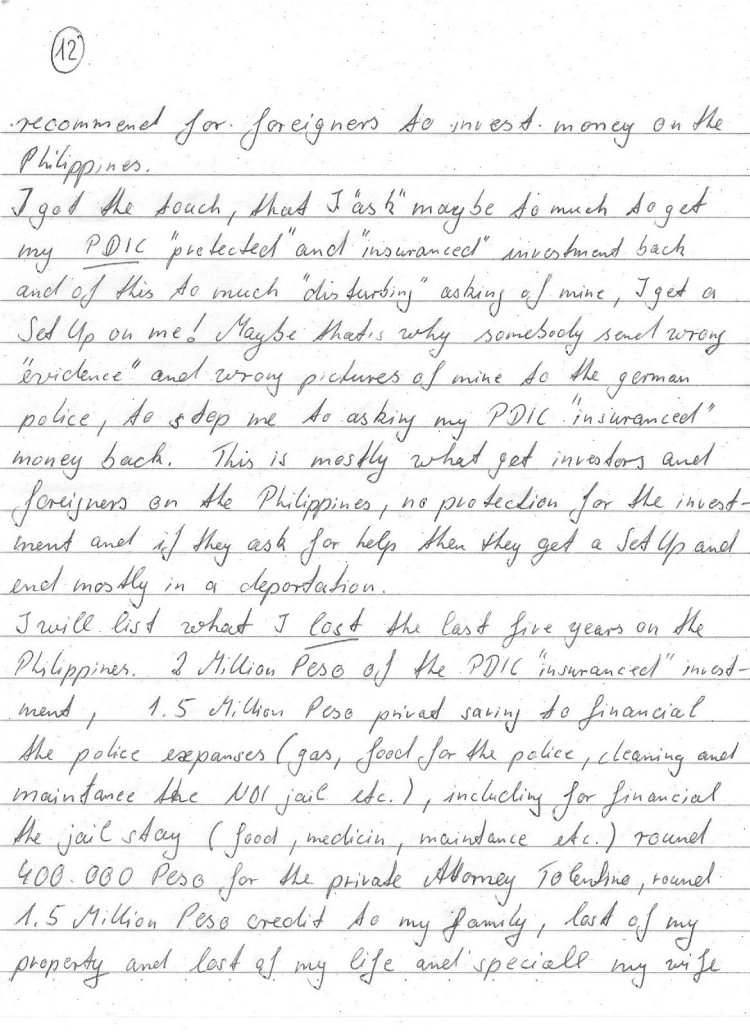 12
recommend for foreigners to invest money on the
Philippines.
I got the touch, that I "ask" maybe to much to get
my PDIC "protected" and "insuranced" investment back
and of this to much "disturbing" asking of mine, I get a
Set Up on me! Maybe that's why somebody send wrong
"evidence" and wrong pictures of mine to the german
police, to stop me to asking my PDIC "insuranced"
money back. This is mostly what get investors and
foreigners on the Philippines, no protection for the invest-
ment and if they ask for help then they get a Set Up and
end mostly in a deportation.
I will list what I lost the last five years on the
Philippines. 2 Million Peso of the PDIC "insuranced" invest-
ment, 1.5 Million Peso privat saving to financial
the police expanses (gas, food for the police, cleaning and
maintance the NBI jail etc.), including for financial
the jail stay (food, medicin, maintance etc.) round
400.000 Peso for the private Attorney Tolentino, round
1.5 Million Peso credit to my family, lost of my
property and lost of my life and speciall my wife